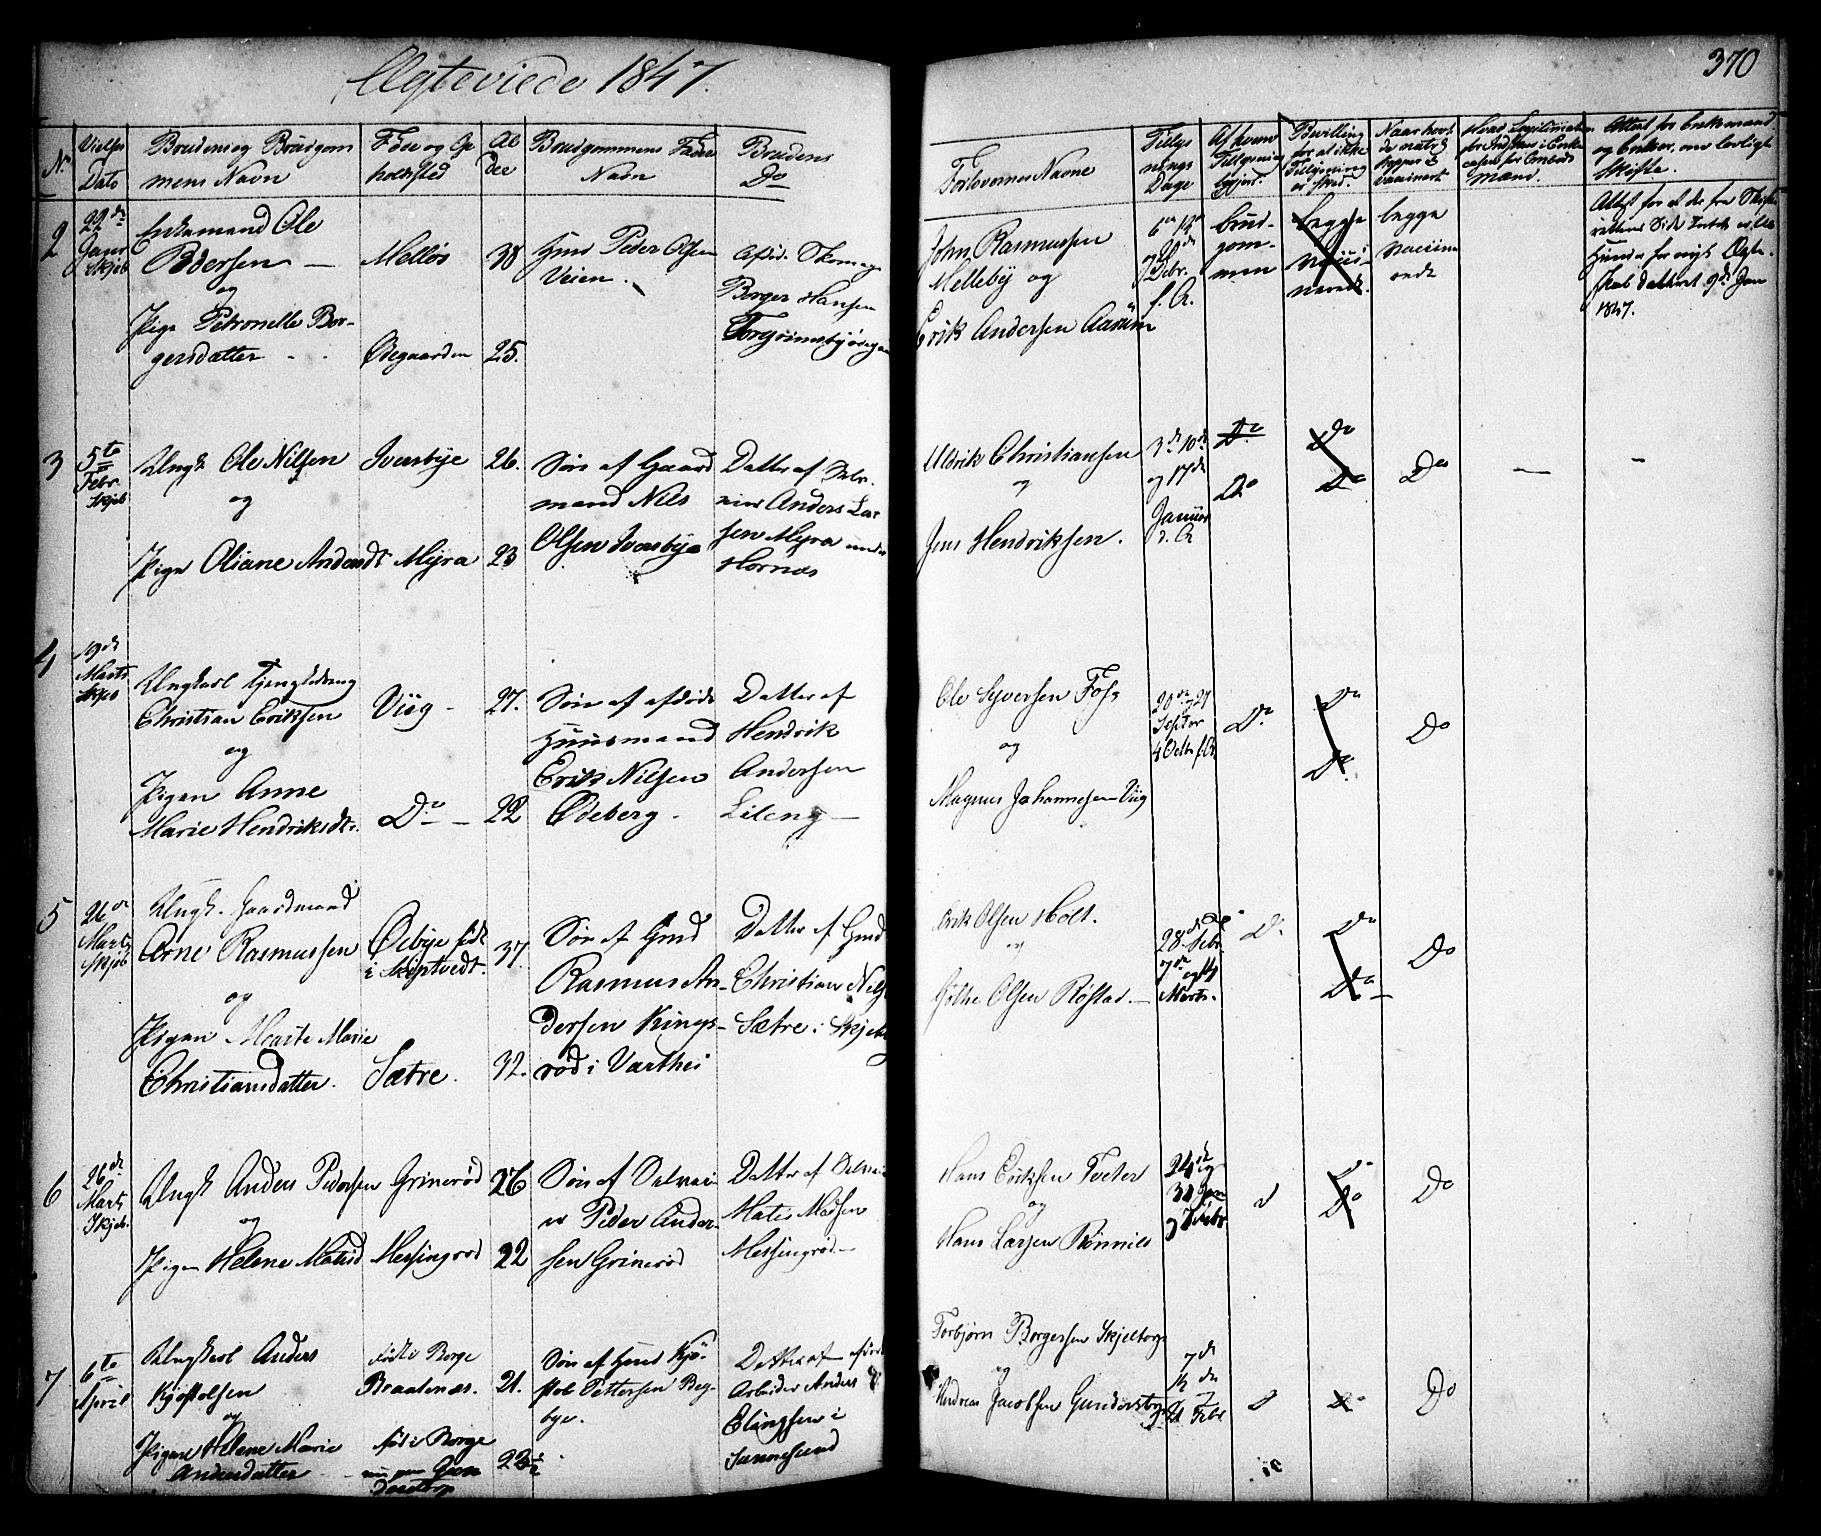 Ægteviede 1847.
370
No
Vielses Dato
Brudens og Brudgom
mens Navn
Føde og Op
holdsted
Al
der
Brudgommens Fader
Navn
Brudens
Do
Forlovernes Navne
Tillys
nings
Dage
Af hvem
Tillysning
begjert.
Bevilling
for at ikke
Tillysning
er skeed.
Naar havt
de naturl.
kopper ell.
vaccineret
Attest for Enkemand
og Enker, om lovligt
Skifte.
2
22de
Januar
Skjeb
Enkemand Ole
Pedersen
og
Pige Petronelle Bor-
gersdatter
Melløs
Ødegaarden
38
25.
Huusmd Peder Olsen
Veien.
Afdøde Skomager
Borger Hansen
Torgrimsbyødegaard
John Rasmussen
Melleby og
Erik Andersen Aarum
6te 13de
20de
Debr.
f. A.
brud-
gom-
men
begge
vacci-
nerede.
begge
vaccine
rede
Attest for at der fra Skifte
rettens Side Intet er til
Hinder for nyt Ægte-
skab dateret 9de Jan
1847.
3
5te
Febr.
Skjeb
Ungk. Ole Nilsen
og
Pige Oliane Andersdt
Iversbye
Myra
26.
23
Søn af Gaard
mand Nils
Olsen Iversbye
Datter af Selv-
eier Anders Lar
sen Myra under
Hornæs
Uldrik Christiansen
og
Jens Hendriksen.
3de 10de
og 17de
Januar
d. A
Do
Do
Do
Do
Do
4
19de
Marts
Skjeb
Ungkarl
Christian Eriksen
og
Pigen Anne
Marie Hendriksdt.
Viig
Do
27.
22
Søn af afdøde
Huusmand
Erik Nilsen
Ødeberg.
Datter af
Hendrik
Andersen
Lileng
Ole Syversen Foss
og
Magnus Johannesen Viig
20de og 27
Septbr
4 Octbr f. A.
Do
Do
Do
Do
5
26de
Marts
Skjeb
Ungk. Gaardmand
Arne Rasmussen
og
Pigen Marte Marie
Christiansdatter.
Oebye født
i Skiptvedt.
Sætre.
37.
32.
Søn af Gmd
Rasmus An-
dersen Kings-
rød i Varthei
Datter af Gmd
Christian Nils
Sætre i Skjeb
Erik Olsen Holt.
og
Gothe Olsen Røstad.
28de Febr.
7de og 14
Marts.
Do
Do
Do
Do
6
26de
Marts
Skjeb.
Ungk Anders Pedersen
og
Pigen Helene Matisd
Grinerød
Messingrød
26
22
Søn af Selvei-
er Peder Ander-
sen Grinerød
Datter af Selveier
Matis Madsen
Messingrød
Hans Eriksen Tveter
og
Hans Larsen Rønnild
24de og
31 Jan
7 Febr
Do
Do
7
6te
April
Ungkarl Anders
Kjøstolsen
og
Pigen Helene Marie
Andersdatter
født i Borge
Braatenæs.
født i Borge
21.
23½
Søn af Huusmd Kjø-
stol Pettersen Beg-
bye.
Datter af afdøde
Arbeider Anders
Elingsen i
Sannesund
Torbjørn Borgersen Skjeltorp
og
Andreas Jacobsen Gundersby
7de
14de
21 Febr
Do
Do